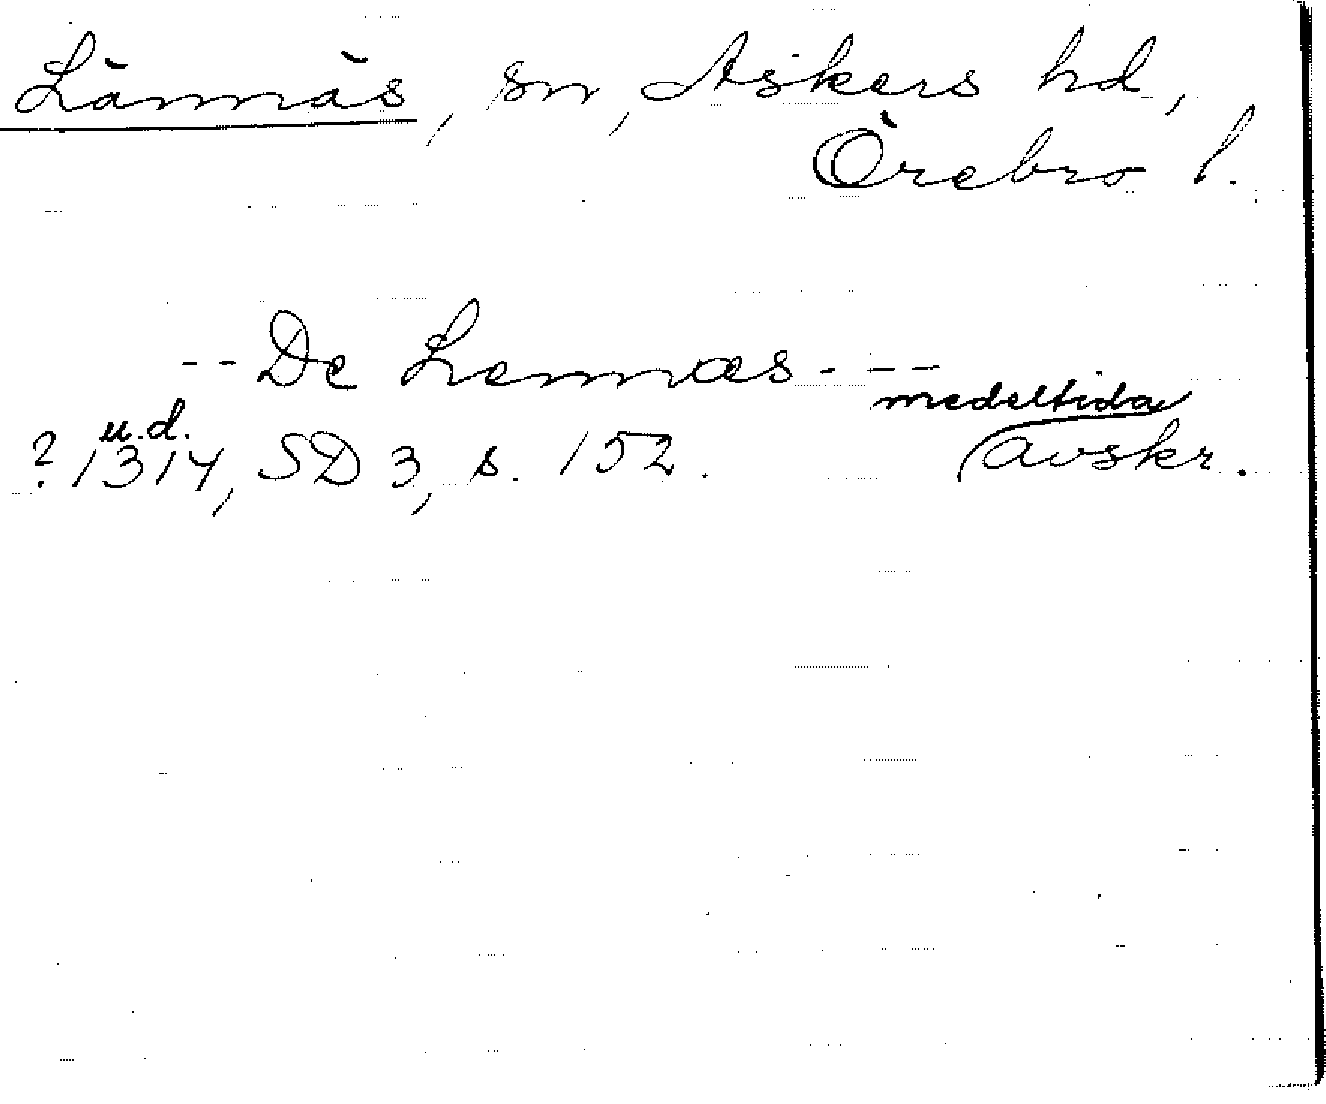 Lännäs, sn, Askers hd,
Örebro l.
--De Lennæs----
medeltida
u.d.
? 1314, SD 3, s. 152. avskr.